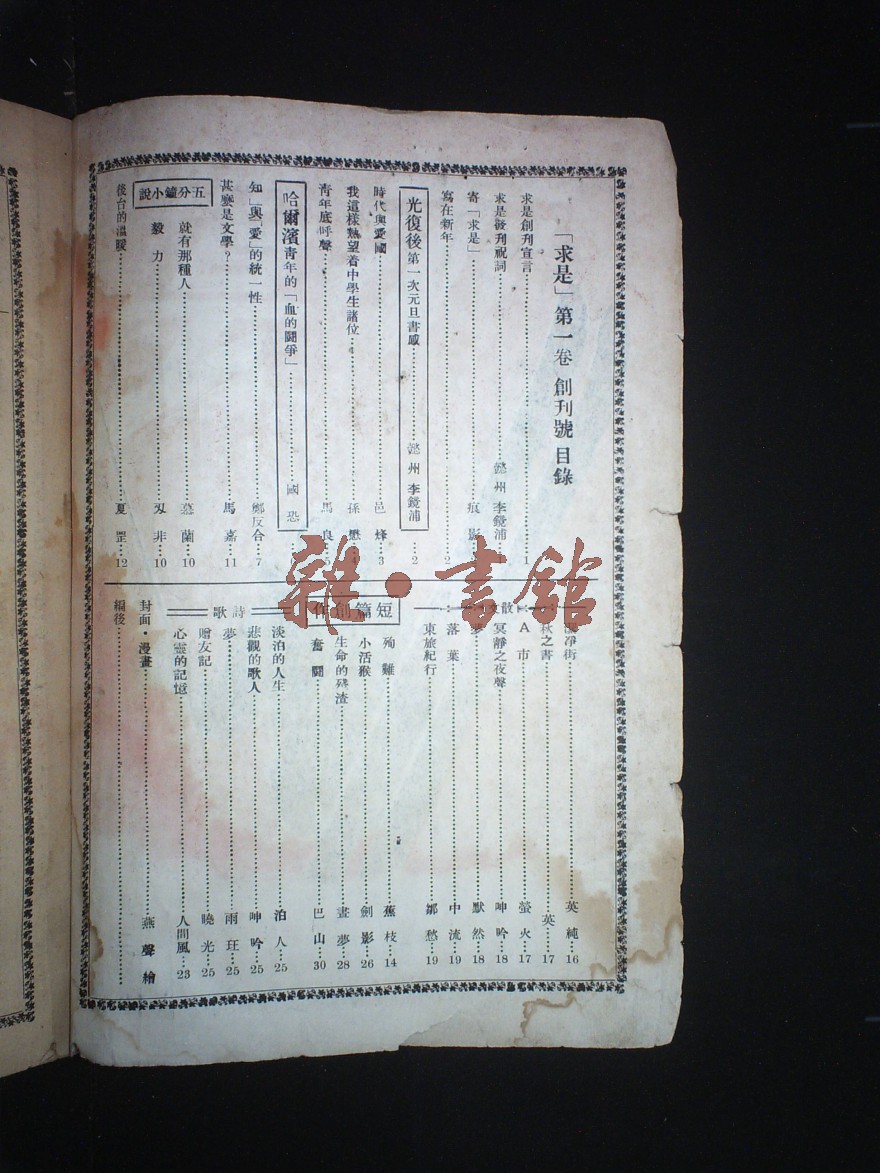 「求是」第一卷 創刊號 目錄
求是創刊宣言 1
求是發刊祝詞 懿州 李鏡浦 2
寄「求是」 痕影
寫在新年 2
光復後第一次元旦書感 懿州 李鏡浦 2
時代與愛國 邑烽 3
我這樣熱望着中學生諸位 孫
青年底呼聲 馬良
哈爾濱青年的「血的鬪爭」 國恐
知」與「愛」的統一性 鄭反合 7
甚麼是文學? 馬嘉 11
五分鐘小說
就有那種人 慕蘭 10
毅力 叒非 10
後台的溫暖 夏罡 12
散
凈街 英純 16
秋之書 英 17
A市 螢火 17
冥靜之夜聲 呻吟 18
夢 默然 18
落葉 中流 19
東旅紀行 鄒愁 19
短篇創作
殉難 蕉枝 14
小活猴 劍影 26
生命的殘渣 晝夢 28
奮鬪 巴山 30
詩歌
淡泊的人生 泊人 25
悲觀的歌人 呻吟 25
夢 雨玨 25
贈友記 曉光 25
心靈的記憶 人間風 23
封面·漫畫 燕聲繪
編後
雜·書館